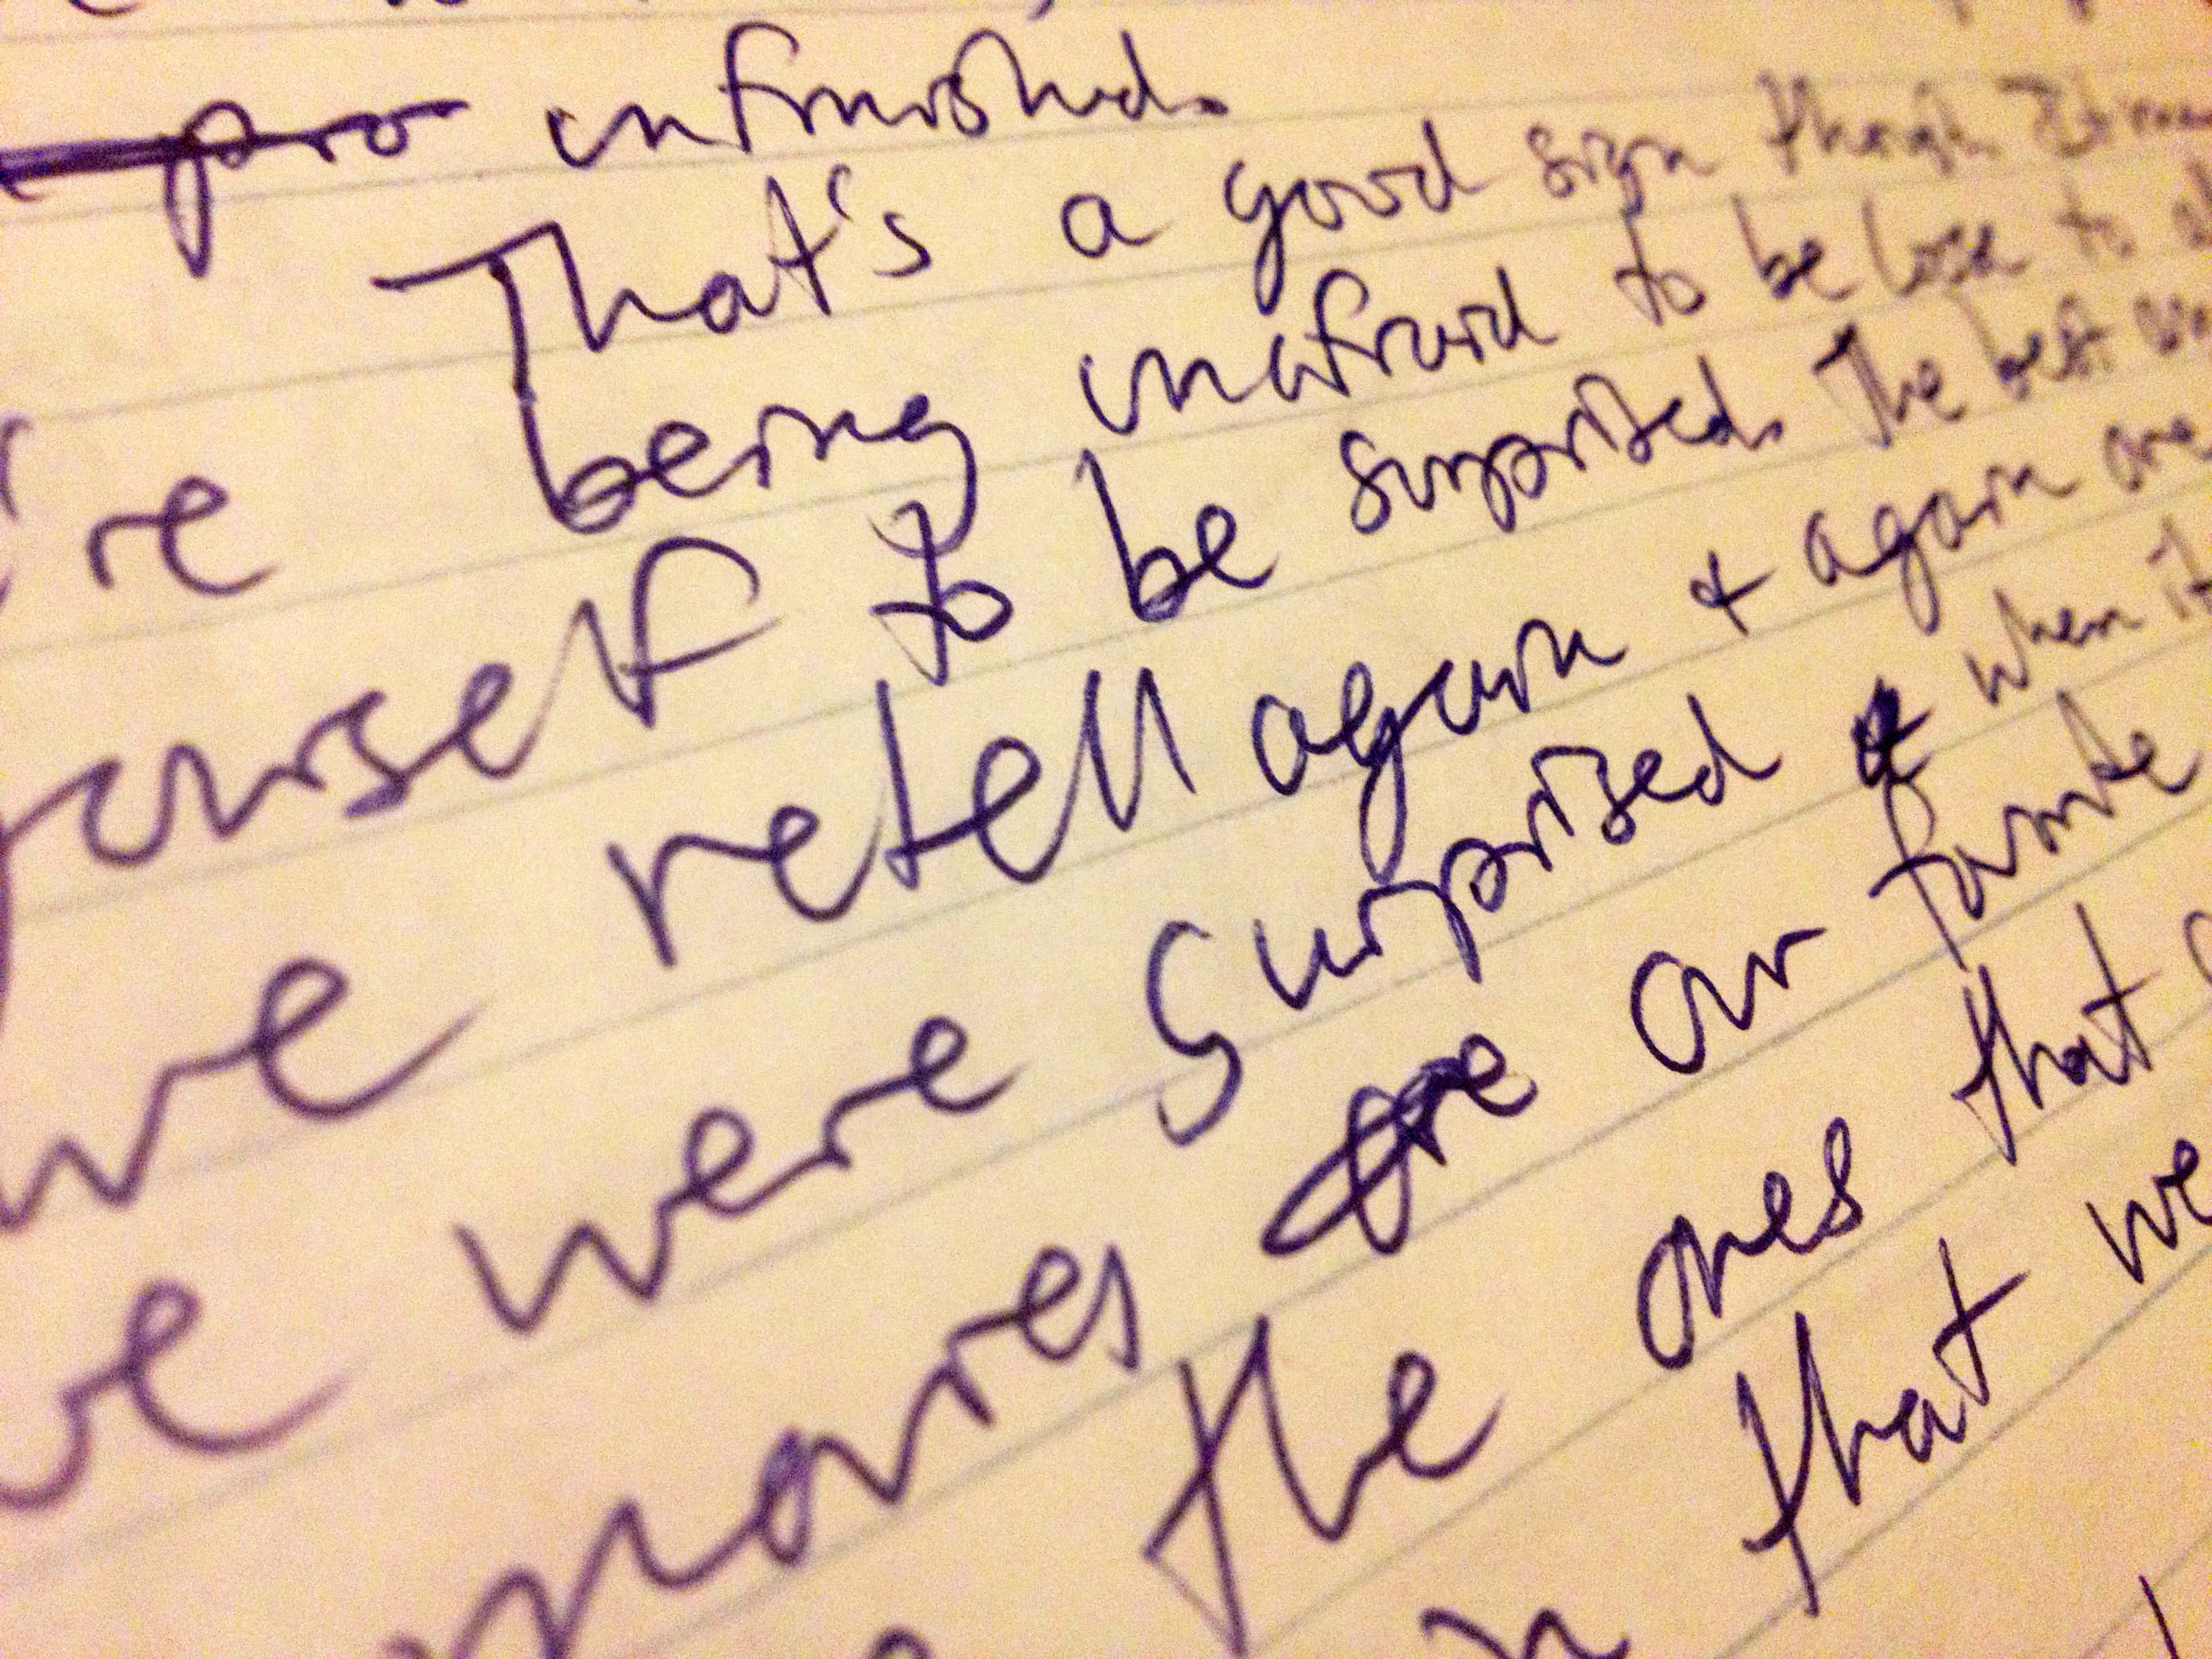 pro unfinished.
That's a good sign though
're being unafraid to be lose to
ourself to be surprised. The best
we retell again & again are
we were surprised & when it
movies are our favorite
the ones that
that we